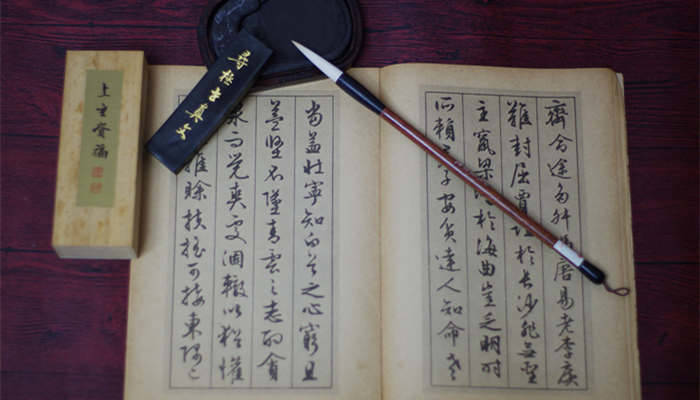 齊命途多舛易老李廣
難封屈賈於長沙非無聖
主竄梁於海曲豈乏明時
所賴子安貧達人知命老
當益壯寧知白首之心窮且
益堅不墜青雲之志酌貪
泉而覺爽處涸轍以猶懽
雖賒扶搖可接東隅已